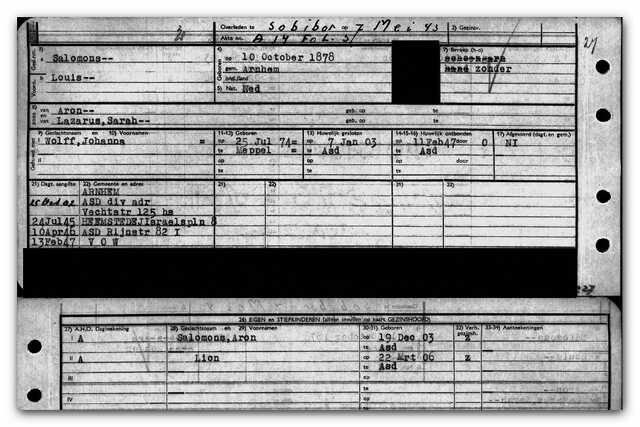 Overleden te Sobibor op 7 Mei 43 2) Gezinsv.
Akte no. A 14 FoL. 51
27
3) 4) 7) Beroep (h-o)
I Salomons-- op 10 October 1878
gem. Arnhem zonder
II Louis-- land
5) Nat. Ned
van Aron-- geb. op te
en
van Lazarus, Sarah-- geb. op te
9) Geslachtsnaam en 10) Voornamen 11-12) Geboren 13) Huwelijk gesloten 14-15-16) Huwelijk ontbonden 17) Afgevoerd (dagt. en gem.)
I Wolff, Johanna = op 25 Jul 74= op 7 Jan 03 op 11Feb47 door 0 NI
te Meppel = te Asd te Asd
II op op op door
te te te
21) Dagt. aangifte 22) Gemeente en adres 21) 22) 21) 22)
ARNHEM
ASD div adr
Vechtstr 125 hs
24Jul45 HEEMSTEDEJIsraelspln 8
10Apr46 ASD Rijnstr 82 I
13Feb47 V O W
26) EIGEN en STIEFKINDEREN (alléén invullen op kaart GEZINSHOOFD).
27) A.H.O. Dagtekening 28) Geslachtsnaam en 29) Voornamen 30-31) Geboren 32) Verh. gezinh. 33-34) Aantekeningen
I A Salomons, Aron op 19 Dec 03 z
te Asd
II A Lion op 22 Mrt 06 z
te Asd
III op
te
IV op